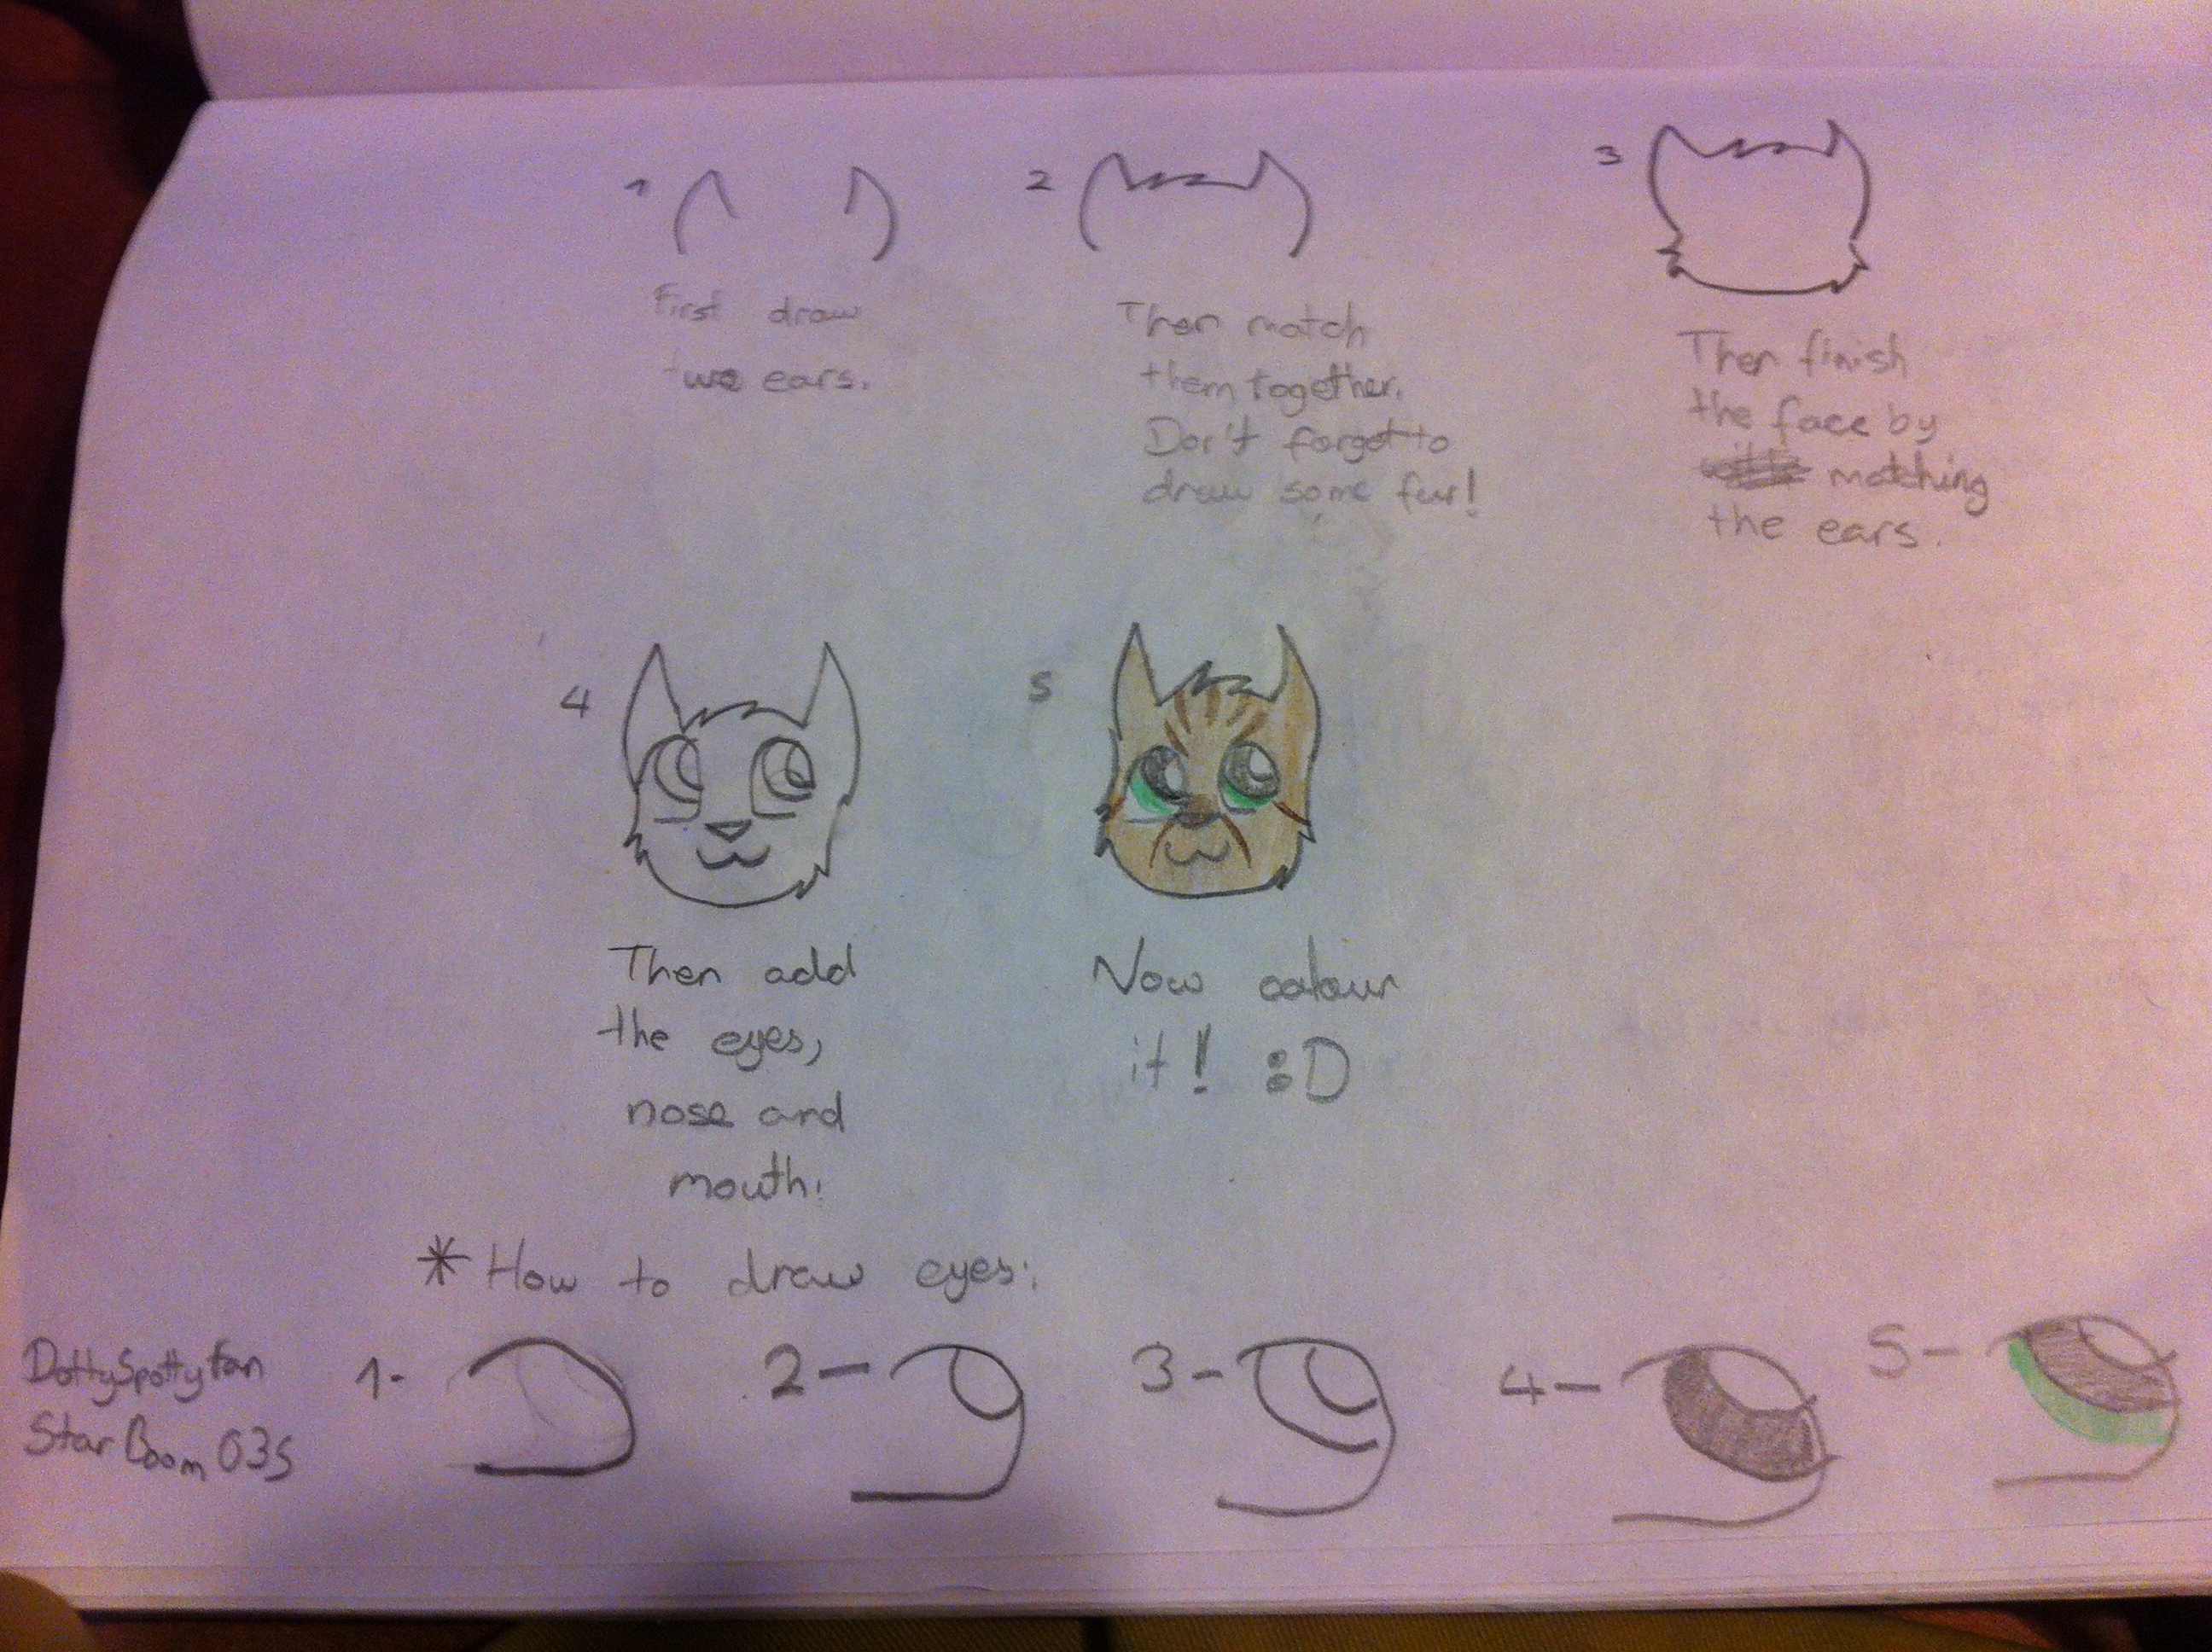 1
First draw
two ears.
2
Then match
them together.
Don't forget to
draw some fur!
3
Then finish
the face by
matching
the ears.
4
Then add
the eyes,
nose and
mouth.
5
Now colour
it! :D
* How to draw eyes:
DottySpottyfan
StarBoom035
1-
2-
3-
4-
5-